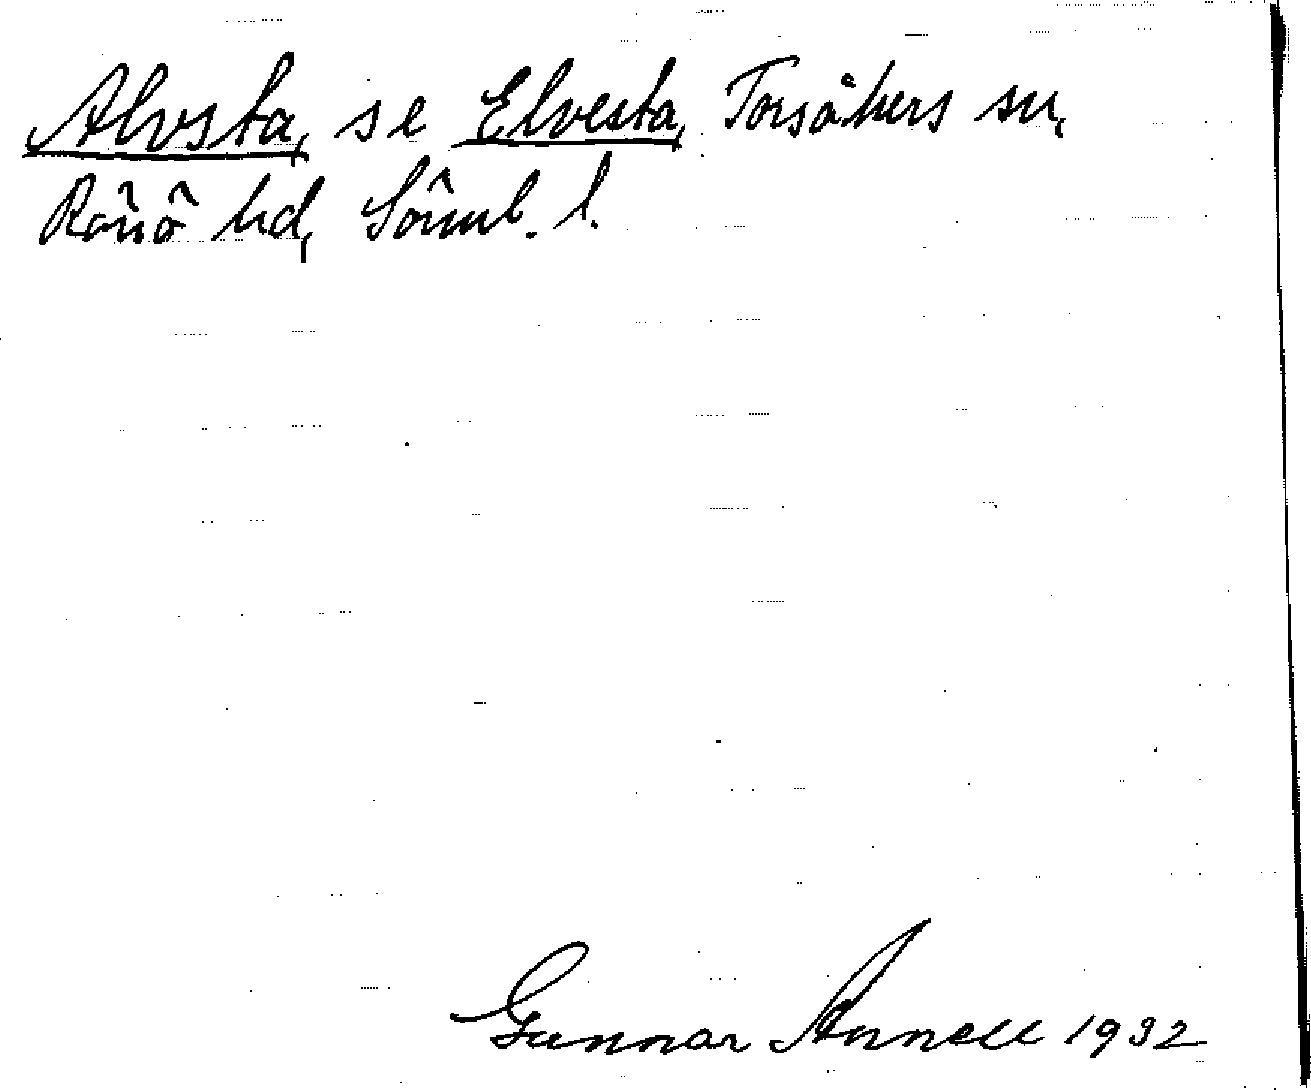 Alvsta, se Elvesta, Torsåkers sn,
Rönö hd, Sörml. l.
Gunnar Annell 1932